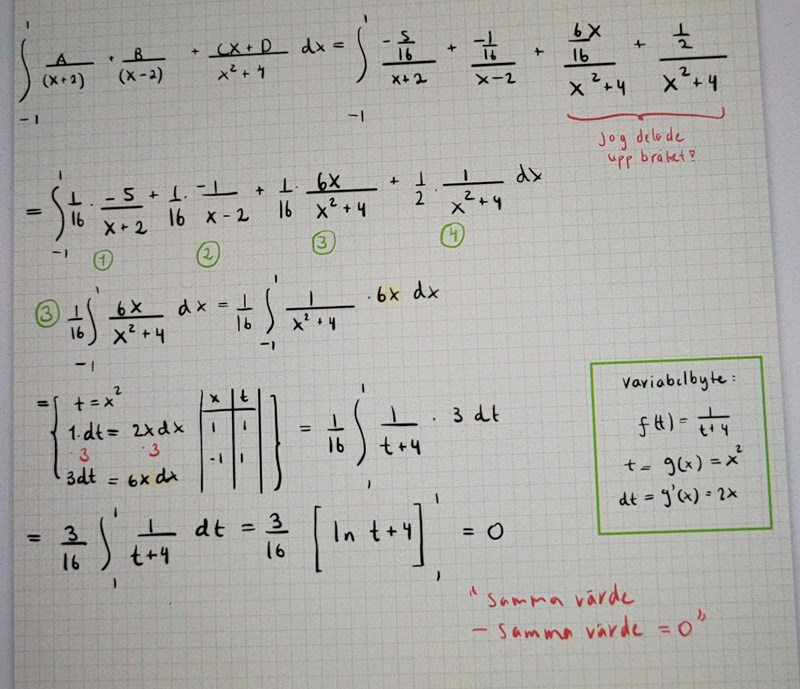 ∫_{-1}^{1} A/(x+2) + B/(x-2) + (Cx+D)/(x²+4) dx = ∫_{-1}^{1} (-5/16)/(x+2) + (-1/16)/(x-2) + (6x/16)/(x²+4) + (1/2)/(x²+4)
Jag delade
upp bråket?
= ∫_{-1}^{1} 1/16 · -5/(x+2) + 1/16 · -1/(x-2) + 1/16 · 6x/(x²+4) + 1/2 · 1/(x²+4) dx
① ② ③ ④
③ 1/16 ∫_{-1}^{1} 6x/(x²+4) dx = 1/16 ∫_{-1}^{1} 1/(x²+4) · 6x dx
= { t = x²
1·dt = 2x dx
·3 ·3
3dt = 6x dx
x | t
1 | 1
-1 | 1 } = 1/16 ∫_{1}^{1} 1/(t+4) · 3 dt
Variabelbyte:
f(t) = 1/(t+4)
t = g(x) = x²
dt = g'(x) = 2x
= 3/16 ∫_{1}^{1} 1/(t+4) dt = 3/16 [ln t+4]_{1}^{1} = 0
"samma värde
- samma värde = 0"